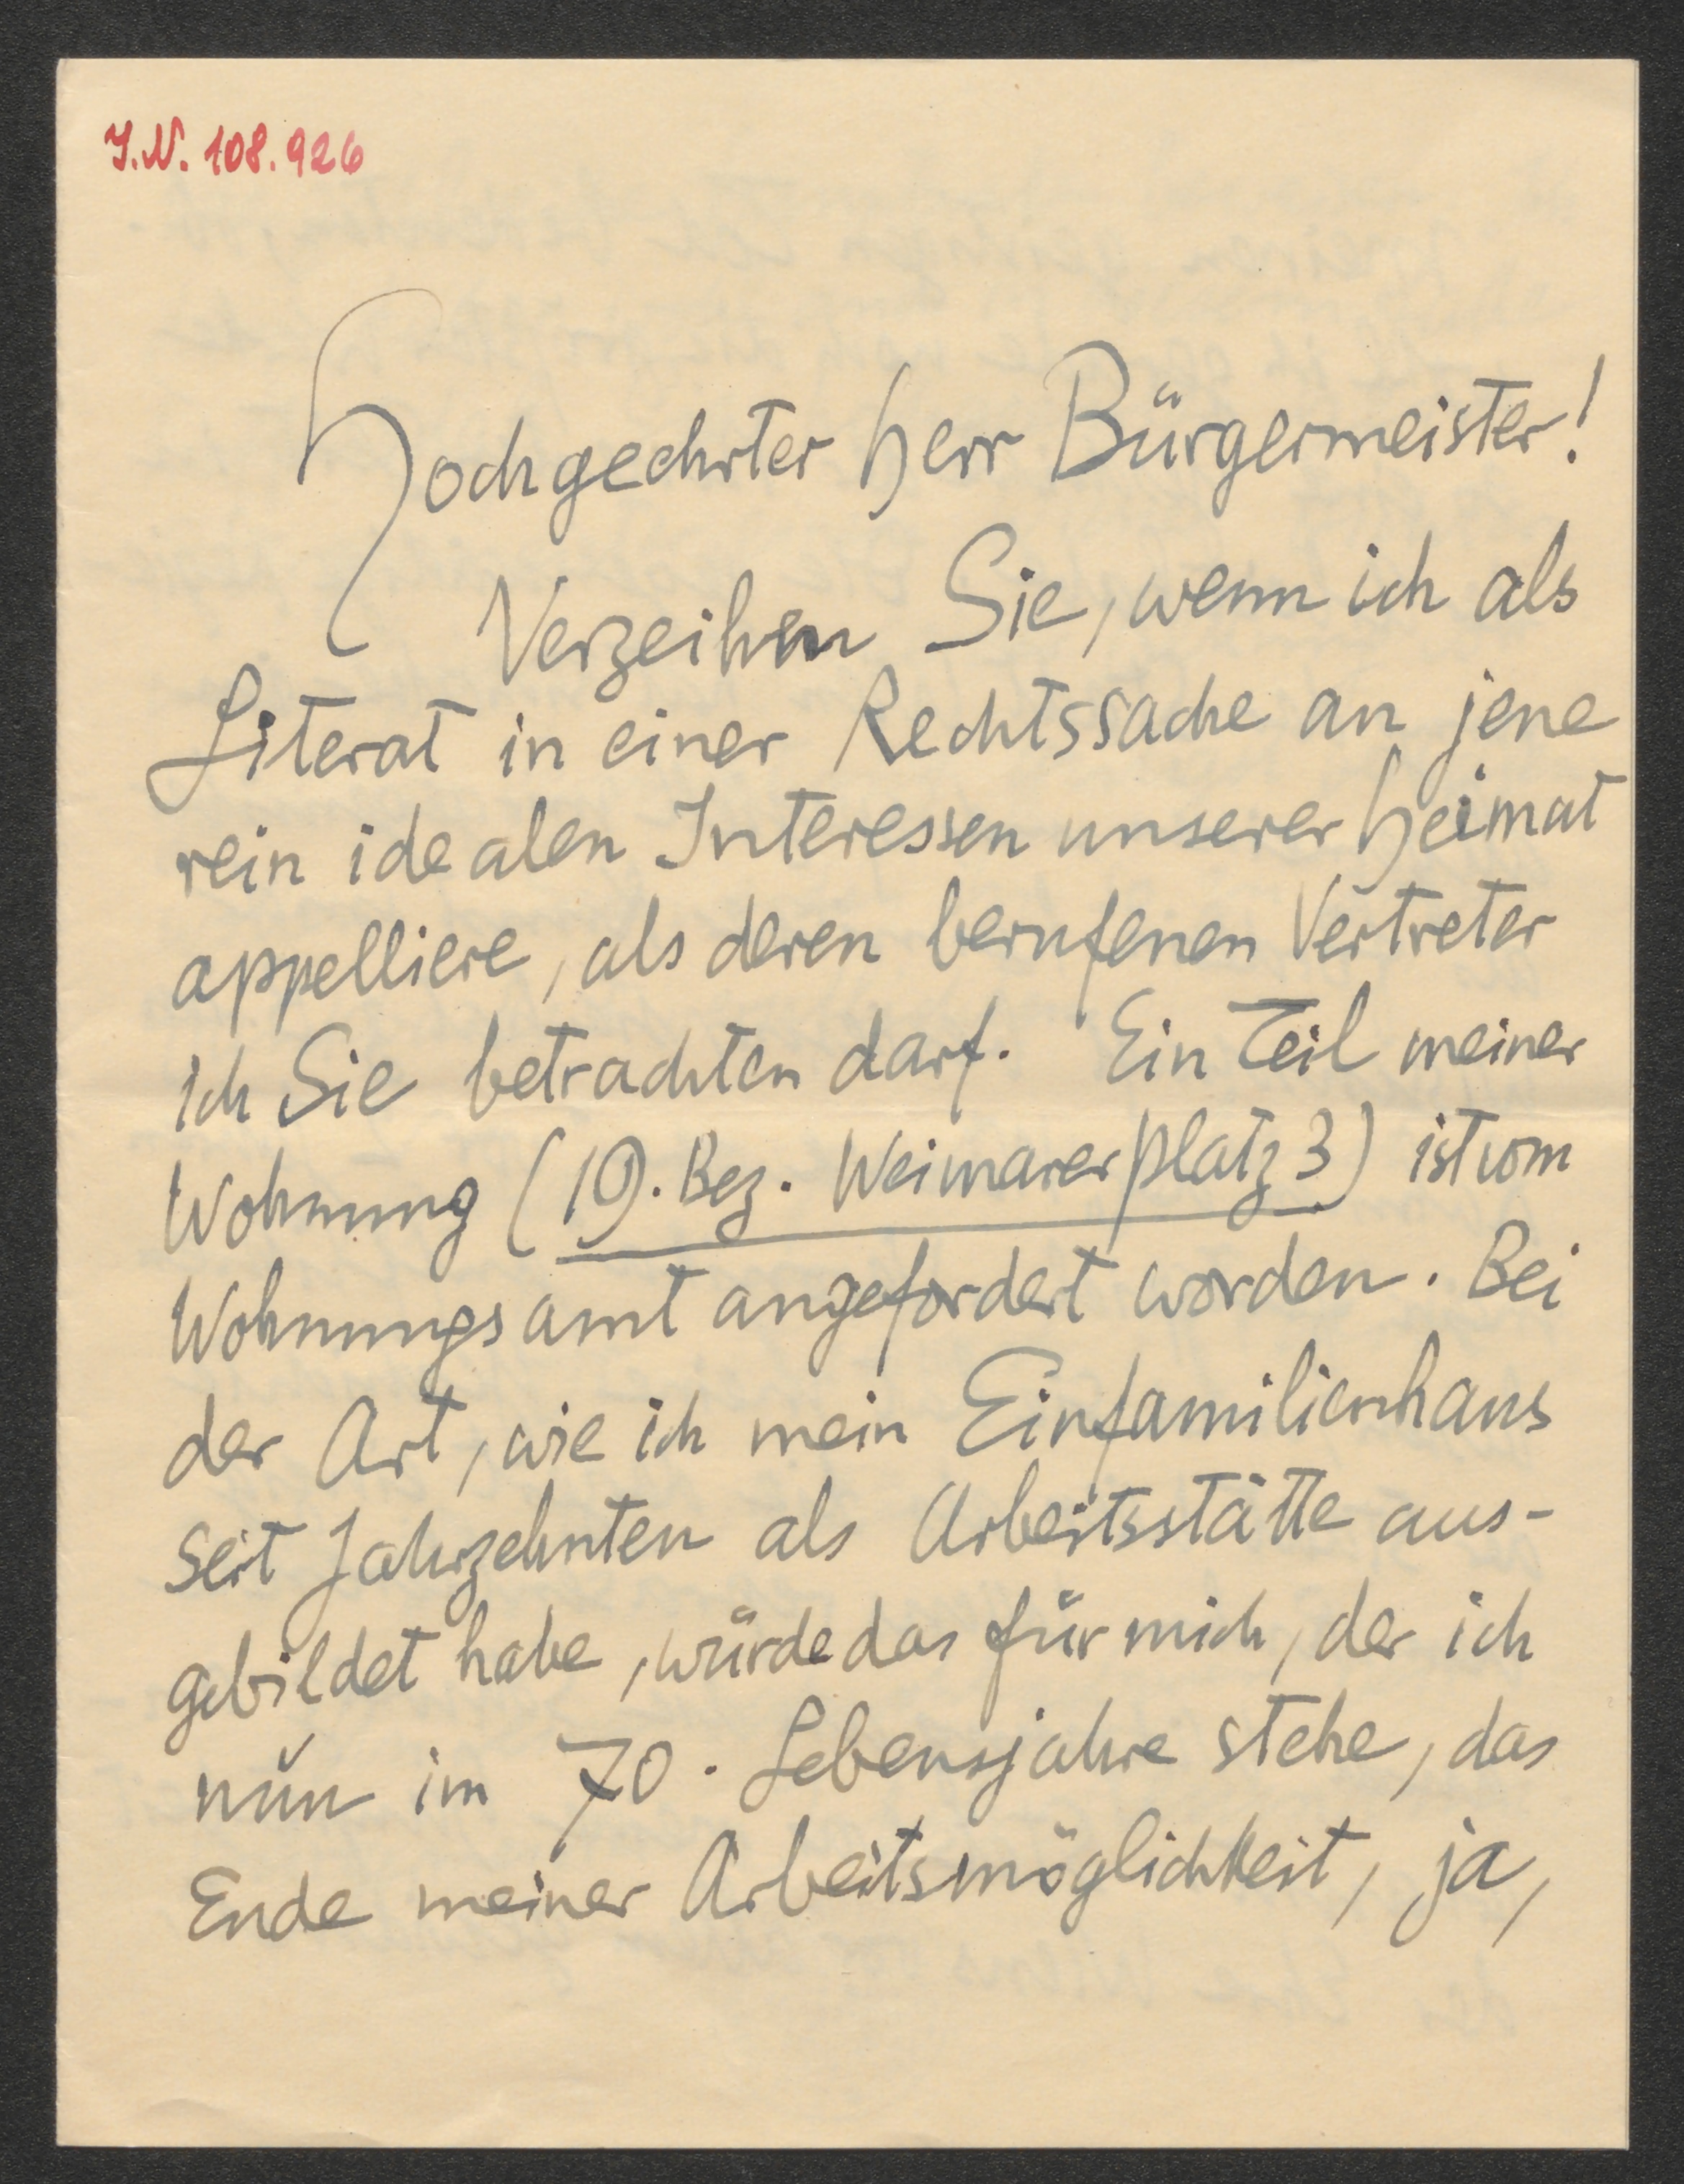 I.N. 108.926
Hochgeehrter Herr Bürgermeister!
Verzeihen Sie, wenn ich als
Literat in einer Rechtssache an jene
rein idealen Interessen unserer Heimat
appelliere, als deren berufenen Vertreter
ich Sie betrachten darf. Ein Teil meiner
Wohnung (19. Bez. Weimarerplatz 3) ist vom
Wohnungsamt angefordert worden. Bei
der Art, wie ich mein Einfamilienhaus
seit Jahrzehnten als Arbeitsstätte aus-
gebildet habe, würde das für mich, der ich
nun im 70. Lebensjahre stehe, das
Ende meiner Arbeitsmöglichkeit, ja,